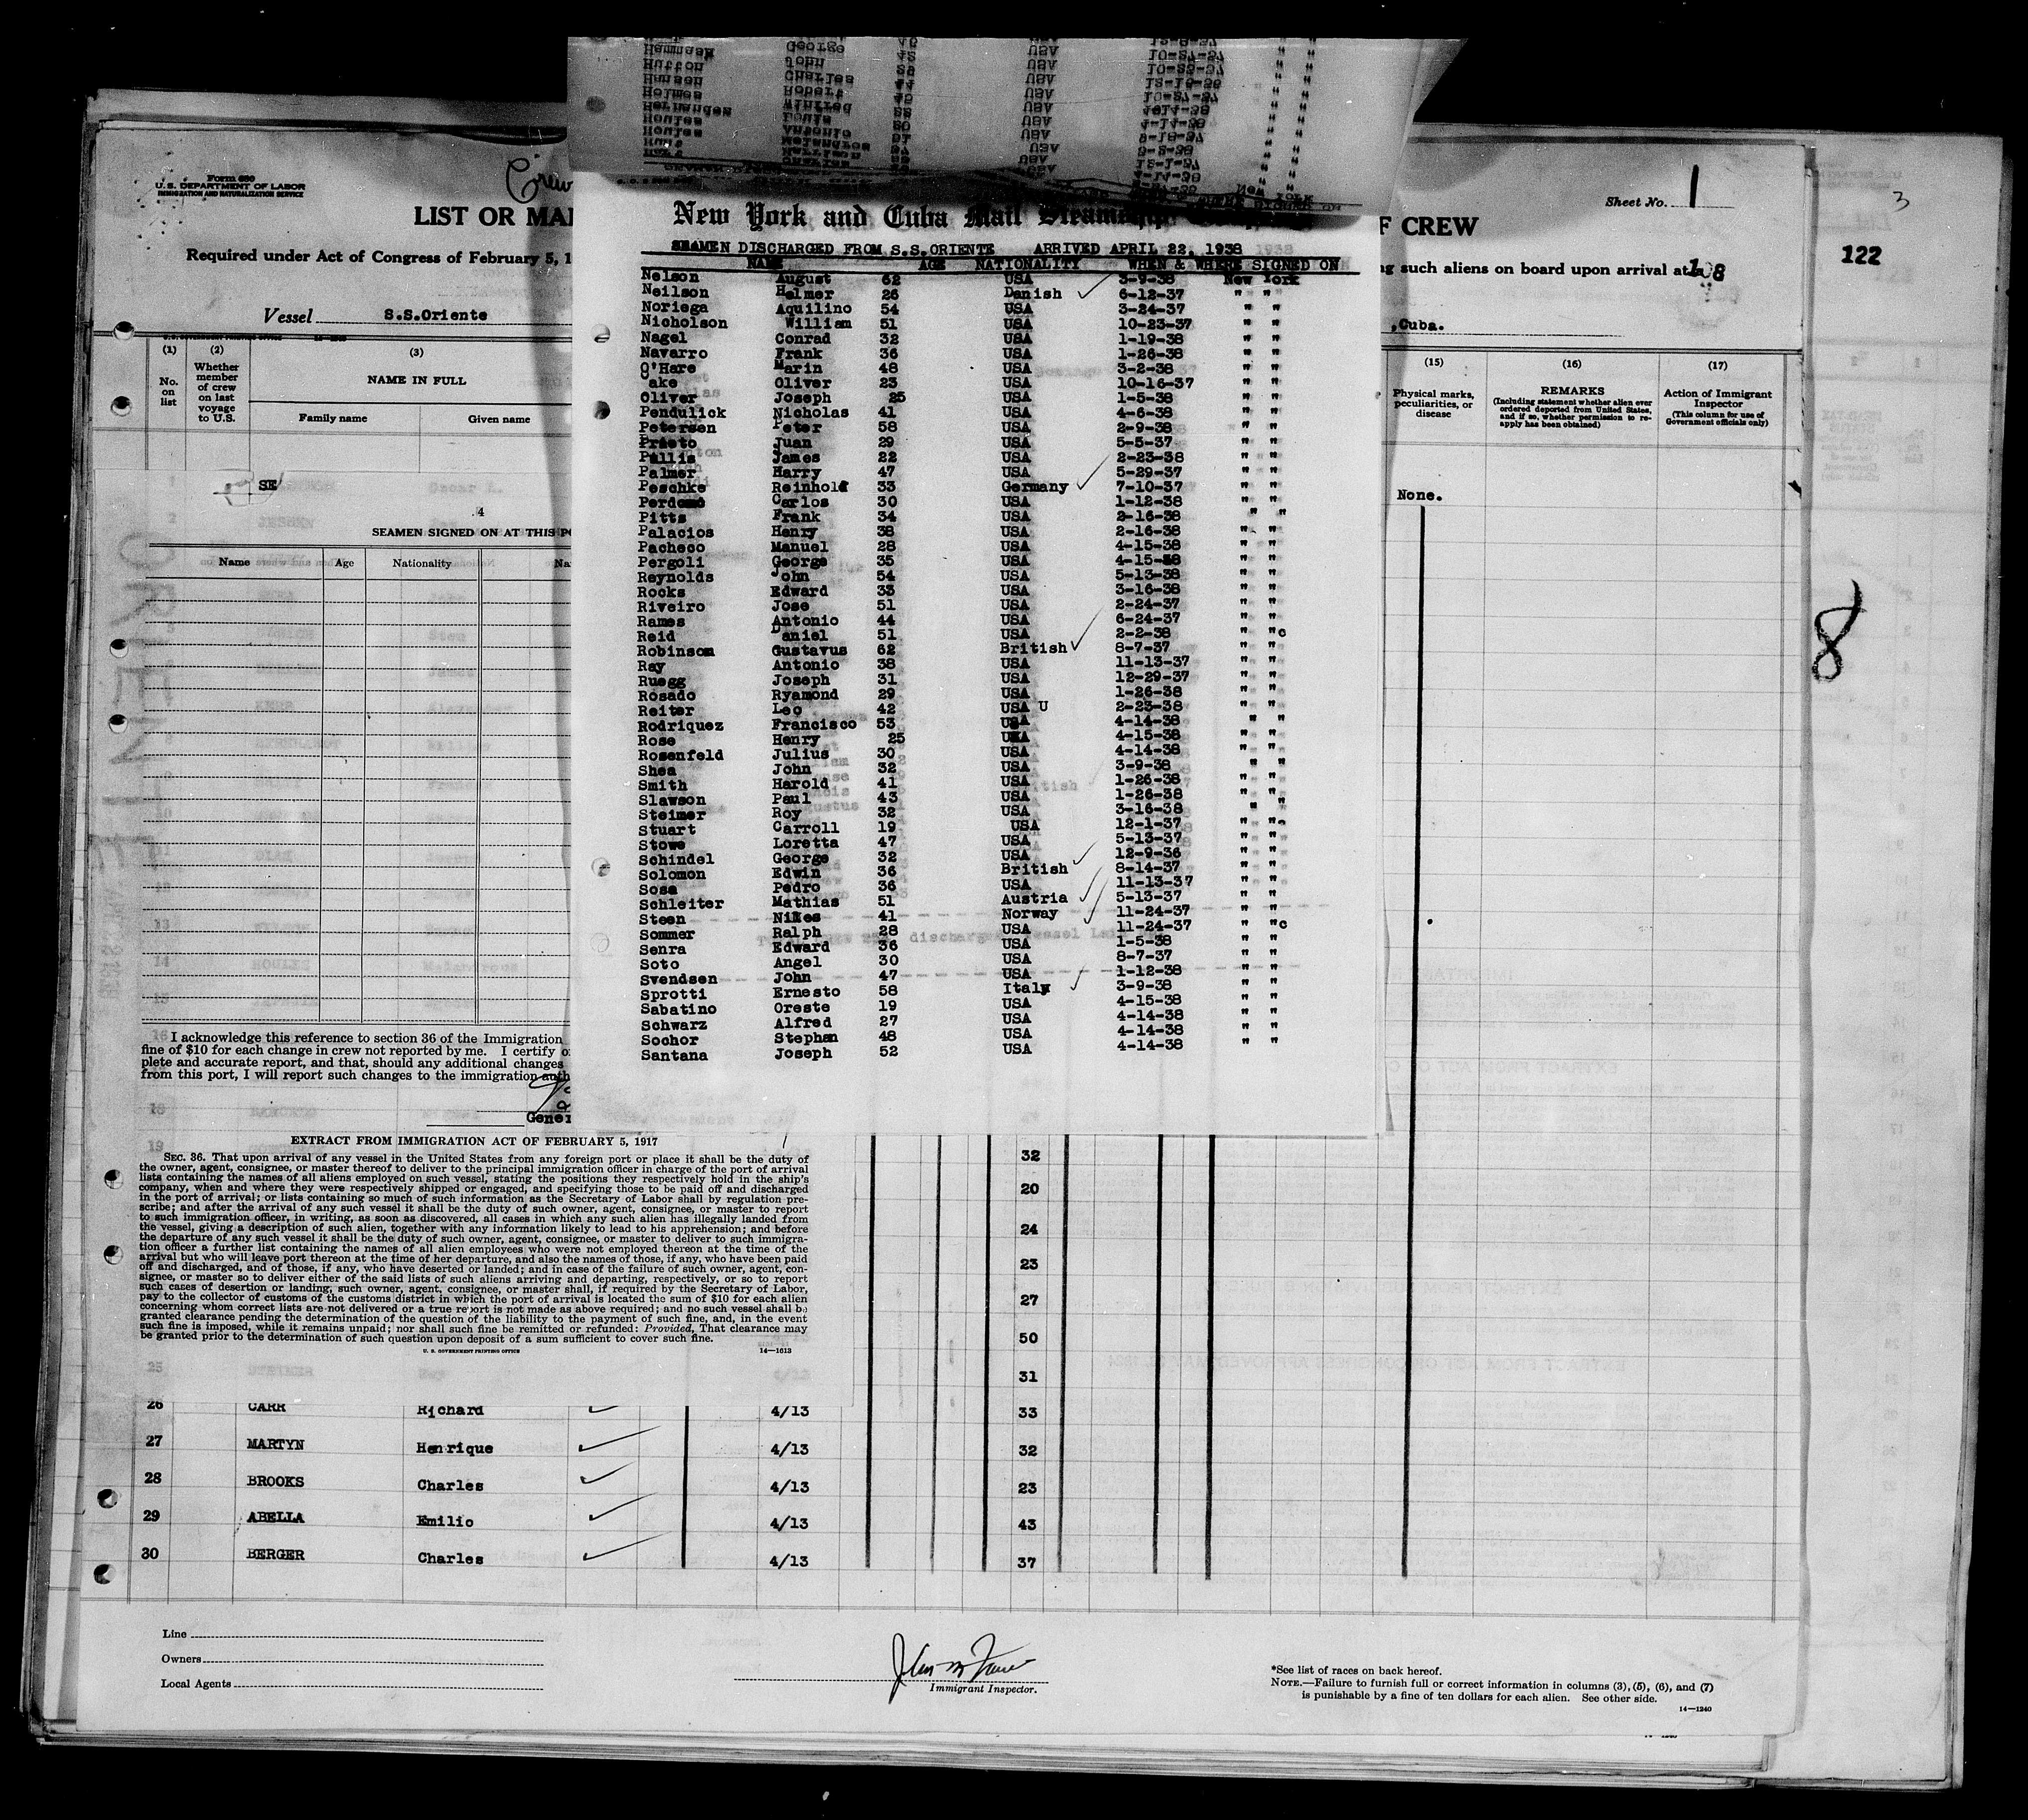 Form 680
U.S. DEPARTMENT OF LABOR
IMMIGRATION AND NATURALIZATION SERVICE
Crew
LIST OR MA
F CREW
Sheet No. 1
3
122
Required under Act of Congress of February 5, 1
g such aliens on board upon arrival at
Vessel S.S.Oriente
,Cuba.
(1) (2) (3) (15) (16) (17)
No. on list
Whether member of crew on last voyage to U.S.
NAME IN FULL
Family name Given name
Physical marks, peculiarities, or disease
REMARKS
(Including statement whether alien ever ordered deported from United States, and if so, whether permission to re-apply has been obtained)
Action of Immigrant Inspector
(This column for use of Government officials only)
None.
8
New York and Cuba Mail
SEAMEN DISCHARGED FROM S.S.ORIENTE ARRIVED APRIL 22, 1938
NAME AGE NATIONALITY WHEN & WHERE SIGNED ON
Nelson August 62 USA 3-9-38 New York
Neilson Helmer 26 Danish 6-12-37 " "
Noriega Aquilino 54 USA 3-24-37 " "
Nicholson William 51 USA 10-23-37 " "
Nagel Conrad 32 USA 1-19-38 " "
Navarro Frank 36 USA 1-26-38 " "
O'Hare Marin 48 USA 3-2-38 " "
Oake Oliver 23 USA 10-16-37 " "
Oliver Joseph 25 USA 1-5-38 " "
Pendulick Nicholas 41 USA 4-6-38 " "
Petersen Peter 58 USA 2-9-38 " "
Prieto Juan 29 USA 5-5-37 " "
Pillis James 22 USA 2-23-38 " "
Palmer Harry 47 USA 5-29-37 " "
Peschke Reinhold 33 Germany 7-10-37 " "
Perdomo Carlos 30 USA 1-12-38 " "
Pitts Frank 34 USA 2-16-38 " "
Palacios Henry 38 USA 2-16-38 " "
Pacheco Manuel 28 USA 4-15-38 " "
Pergoli George 35 USA 4-15-38 " "
Reynolds John 54 USA 5-13-38 " "
Rocks Edward 33 USA 3-16-38 " "
Riveiro Jose 51 USA 2-24-37 " "
Rames Antonio 44 USA 6-24-37 " "
Reid Daniel 51 USA 2-2-38 " "c
Robinson Gustavus 62 British 8-7-37 " "
Ray Antonio 38 USA 11-13-37 " "
Ruegg Joseph 31 USA 12-29-37 " "
Rosado Ryamond 29 USA 1-26-38 " "
Reiter Leo 42 USA U 2-23-38 " "
Rodriquez Francisco 53 USA 4-14-38 " "
Rose Henry 25 USA 4-15-38 " "
Rosenfeld Julius 30 USA 4-14-38 " "
Shea John 32 USA 3-9-38 " "
Smith Harold 41 USA 1-26-38 " "
Slawson Paul 43 USA 1-26-38 " "
Steimer Roy 32 USA 3-16-38 " "
Stuart Carroll 19 USA 12-1-37 " "
Stowe Loretta 47 USA 5-13-37 " "
Schindel George 32 USA 12-9-36 " "
Solomon Edwin 36 British 8-14-37 " "
Sosa Pedro 36 USA 11-13-37 " "
Schleiter Mathias 51 Austria 5-13-37 " "
Steen Nikes 41 Norway 11-24-37 " "
Sommer Ralph 28 USA 11-24-37 " "c
Senra Edward 36 USA 1-5-38 " "
Soto Angel 30 USA 8-7-37 " "
Svendsen John 47 USA 1-12-38 " "
Sprotti Ernesto 58 Italy 3-9-38 " "
Sabatino Oreste 19 USA 4-15-38 " "
Schwarz Alfred 27 USA 4-14-38 " "
Sochor Stephan 48 USA 4-14-38 " "
Santana Joseph 52 USA 4-14-38 " "
SE
4
SEAMEN SIGNED ON AT THIS PO
Name Age Nationality Na
I acknowledge this reference to section 36 of the Immigration
fine of $10 for each change in crew not reported by me. I certify
plete and accurate report, and that, should any additional changes
from this port, I will report such changes to the immigration auth
Gene
EXTRACT FROM IMMIGRATION ACT OF FEBRUARY 5, 1917
SEC. 36. That upon arrival of any vessel in the United States from any foreign port or place it shall be the duty of
the owner, agent, consignee, or master thereof to deliver to the principal immigration officer in charge of the port of arrival
lists containing the names of all aliens employed on such vessel, stating the positions they respectively hold in the ship's
company, when and where they were respectively shipped or engaged, and specifying those to be paid off and discharged
in the port of arrival; or lists containing so much of such information as the Secretary of Labor shall by regulation pre-
scribe; and after the arrival of any such vessel it shall be the duty of such owner, agent, consignee, or master to report
to such immigration officer, in writing, as soon as discovered, all cases in which any such alien has illegally landed from
the vessel, giving a description of such alien, together with any information likely to lead to his apprehension; and before
the departure of any such vessel it shall be the duty of such owner, agent, consignee, or master to deliver to such immigra-
tion officer a further list containing the names of all alien employees who were not employed thereon at the time of the
arrival but who will leave port thereon at the time of her departure, and also the names of those, if any, who have been paid
off and discharged, and of those, if any, who have deserted or landed; and in case of the failure of such owner, agent, con-
signee, or master so to deliver either of the said lists of such aliens arriving and departing, respectively, or so to report
such cases of desertion or landing, such owner, agent, consignee, or master shall, if required by the Secretary of Labor,
pay to the collector of customs of the customs district in which the port of arrival is located the sum of $10 for each alien
concerning whom correct lists are not delivered or a true report is not made as above required; and no such vessel shall be
granted clearance pending the determination of the question of the liability to the payment of such fine, and, in the event
such fine is imposed, while it remains unpaid; nor shall such fine be remitted or refunded: Provided, That clearance may
be granted prior to the determination of such question upon deposit of a sum sufficient to cover such fine.
U. S. GOVERNMENT PRINTING OFFICE 14—1613
32
20
24
23
27
50
31
26 CARR Richard 4/13 33
27 MARTYN Henrique 4/13 32
28 BROOKS Charles 4/13 23
29 ABELLA Emilio 4/13 43
30 BERGER Charles 4/13 37
Line
Owners
Local Agents
Immigrant Inspector.
*See list of races on back hereof.
NOTE.—Failure to furnish full or correct information in columns (3), (5), (6), and (7)
is punishable by a fine of ten dollars for each alien. See other side.
14—1240